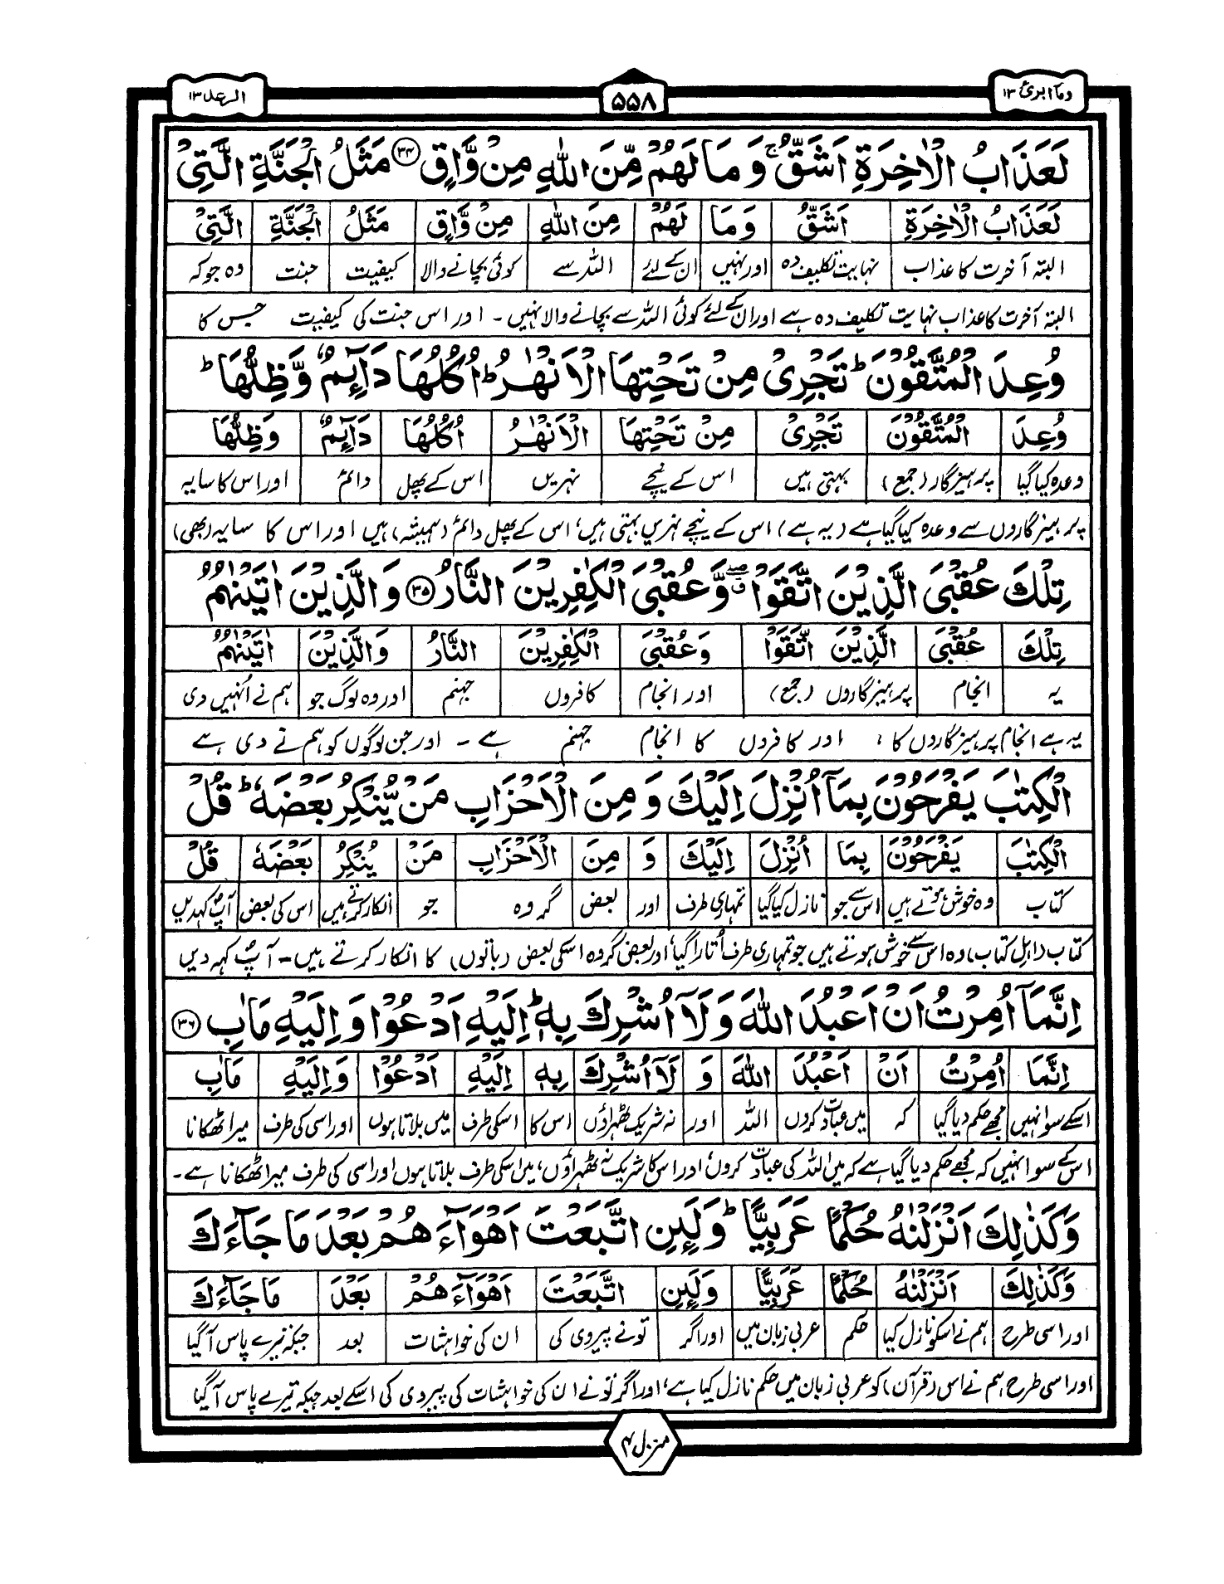 وما ابرئ ۱۳
۵۵۸
الرعد ۱۳
لَعَذَابُ الْاٰخِرَةِ اَشَقُّ ۚ وَمَا لَهُمْ مِّنَ اللّٰهِ مِنْ وَّاقٍ ۳۴ مَثَلُ الْجَنَّةِ الَّتِیْ
لَعَذَابُ الْاٰخِرَةِ اَشَقُّ وَمَا لَهُمْ مِنَ اللّٰهِ مِنْ وَّاقٍ مَثَلُ الْجَنَّةِ الَّتِیْ
البتہ آخرت کا عذاب نہایت تکلیف دہ اور نہیں ان کے لئے اللہ سے کوئی بچانے والا کیفیت جنت وہ جو کہ
البتہ آخرت کا عذاب نہایت تکلیف دہ ہے اور ان کے لئے کوئی اللہ سے بچانے والا نہیں ۔ اور اس جنت کی کیفیت جس کا
وُعِدَ الْمُتَّقُوْنَ ؕ تَجْرِیْ مِنْ تَحْتِهَا الْاَنْهٰرُ ؕ اُكُلُهَا دَآىِٕمٌ وَّظِلُّهَا ؕ
وُعِدَ الْمُتَّقُوْنَ تَجْرِیْ مِنْ تَحْتِهَا الْاَنْهٰرُ اُكُلُهَا دَآىِٕمٌ وَظِلُّهَا
وعدہ کیا گیا پرہیزگار (جمع) بہتی ہیں اس کے نیچے نہریں اس کے پھل دائم اور اس کا سایہ
پرہیزگاروں سے وعدہ کیا گیا ہے (یہ ہے) اس کے نیچے نہریں بہتی ہیں، اس کے پھل دائم (ہمیشہ) ہیں اور اس کا سایہ (بھی)
تِلْكَ عُقْبَی الَّذِیْنَ اتَّقَوْا ۖ وَّعُقْبَی الْكٰفِرِیْنَ النَّارُ ۳۵ وَالَّذِیْنَ اٰتَیْنٰهُمُ
تِلْكَ عُقْبَی الَّذِیْنَ اتَّقَوْا وَعُقْبَی الْكٰفِرِیْنَ النَّارُ وَالَّذِیْنَ اٰتَیْنٰهُمُ
یہ انجام پرہیزگاروں (جمع) اور انجام کافروں جہنم اور وہ لوگ جو ہم نے اُنہیں دی
یہ ہے انجام پرہیزگاروں کا، اور کافروں کا انجام جہنم ہے ۔ اور جن لوگوں کو ہم نے دی ہے
الْكِتٰبَ یَفْرَحُوْنَ بِمَاۤ اُنْزِلَ اِلَیْكَ وَمِنَ الْاَحْزَابِ مَنْ یُّنْكِرُ بَعْضَهٗ ؕ قُلْ
الْكِتٰبَ یَفْرَحُوْنَ بِمَا اُنْزِلَ اِلَیْكَ وَ مِنَ الْاَحْزَابِ مَنْ یُنْكِرُ بَعْضَهٗ قُلْ
کتاب وہ خوش ہوتے ہیں اس سے جو نازل کیا گیا تمہاری طرف اور بعض گروہ جو انکار کرتے ہیں اس کی بعض آپؐ کہدیں
کتاب (اہل کتاب) وہ اس سے خوش ہوتے ہیں جو تمہاری طرف اُتارا گیا، اور بعض گروہ اسکی بعض (باتوں) کا انکار کرتے ہیں ۔ آپؐ کہہ دیں
اِنَّمَاۤ اُمِرْتُ اَنْ اَعْبُدَ اللّٰهَ وَلَاۤ اُشْرِكَ بِهٖ ؕ اِلَیْهِ اَدْعُوْا وَاِلَیْهِ مَاٰبِ ۳۶
اِنَّمَا اُمِرْتُ اَنْ اَعْبُدَ اللّٰهَ وَ لَاۤ اُشْرِكَ بِهٖ اِلَیْهِ اَدْعُوْا وَاِلَیْهِ مَاٰبِ
اسکے سوا نہیں مجھے حکم دیا گیا کہ میں عبادت کروں اللہ اور نہ شریک ٹھہراؤں اس کا اسکی طرف میں بلاتا ہوں اور اسی کی طرف میرا ٹھکانا
اس کے سوا نہیں کہ مجھے حکم دیا گیا ہے کہ میں اللہ کی عبادت کروں، اور اس کا شریک نہ ٹھہراؤں، میں اسکی طرف بلاتا ہوں اور اسی کی طرف میرا ٹھکانا ہے ۔
وَكَذٰلِكَ اَنْزَلْنٰهُ حُكْمًا عَرَبِیًّا ؕ وَلَىِٕنِ اتَّبَعْتَ اَهْوَآءَهُمْ بَعْدَ مَا جَآءَكَ
وَكَذٰلِكَ اَنْزَلْنٰهُ حُكْمًا عَرَبِیًّا وَلَىِٕنِ اتَّبَعْتَ اَهْوَآءَهُمْ بَعْدَ مَا جَآءَكَ
اور اسی طرح ہم نے اسکو نازل کیا حکم عربی زبان میں اور اگر تونے پیروی کی ان کی خواہشات بعد جبکہ تیرے پاس آگیا
اور اسی طرح ہم نے اس (قرآن) کو عربی زبان میں حکم نازل کیا ہے، اور اگر تونے ان کی خواہشات کی پیروی کی اسکے بعد جبکہ تیرے پاس آگیا
منزل ۳